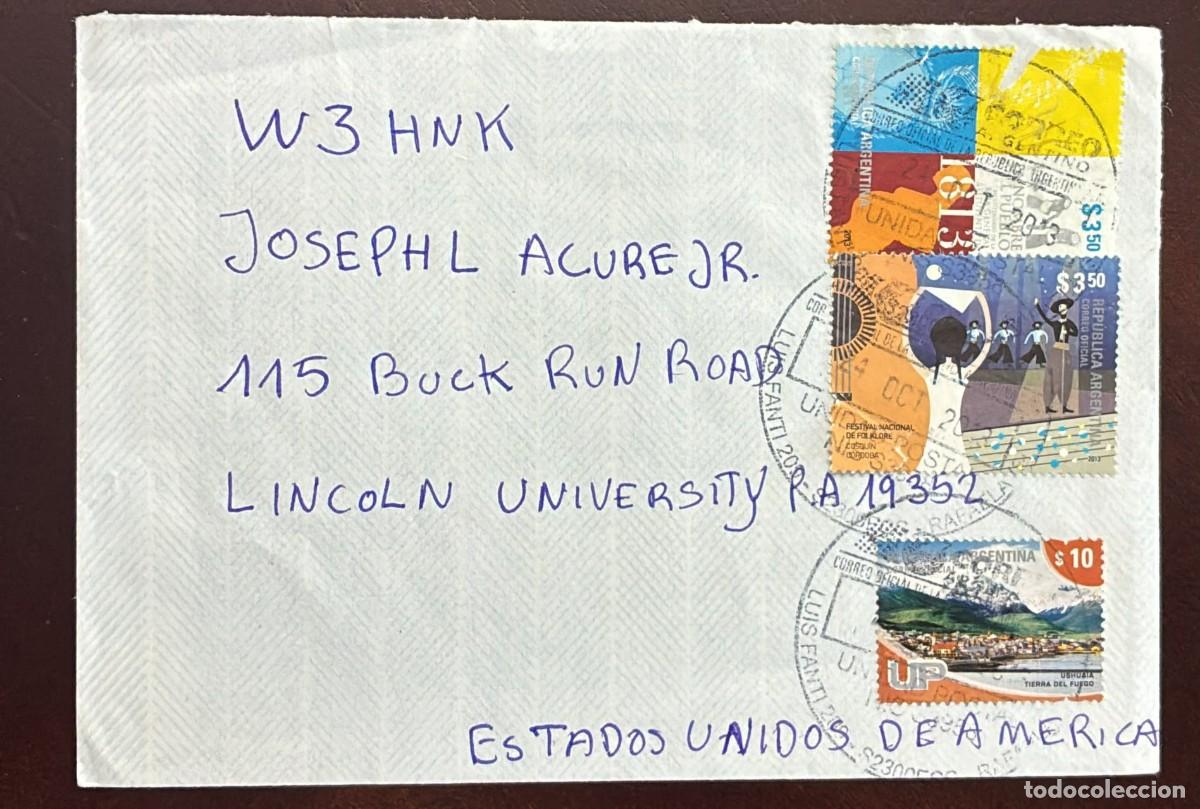 W3HNK
JOSEPH L ACURE JR.
115 BUCK RUN ROAD
LINCOLN UNIVERSITY PA 19352
ESTADOS UNIDOS DE AMERICA
ARGENTINA
1813
2013
$3.50
CORREO
ARGENTINO
CORREO OFICIAL DE LA REPUBLICA ARGENTINA
OCT 2013
$3.50
REPUBLICA ARGENTINA
CORREO OFICIAL
FESTIVAL NACIONAL
DE FOLKLORE
COSQUÍN
CÓRDOBA
2013
24 OCT
UNIDAD POSTAL
LUIS FANTI 20
RAFAELA
ARGENTINA
$10
UP
USHUAIA
TIERRA DEL FUEGO
CORREO OFICIAL DE LA
LUIS FANTI 2
todocoleccion